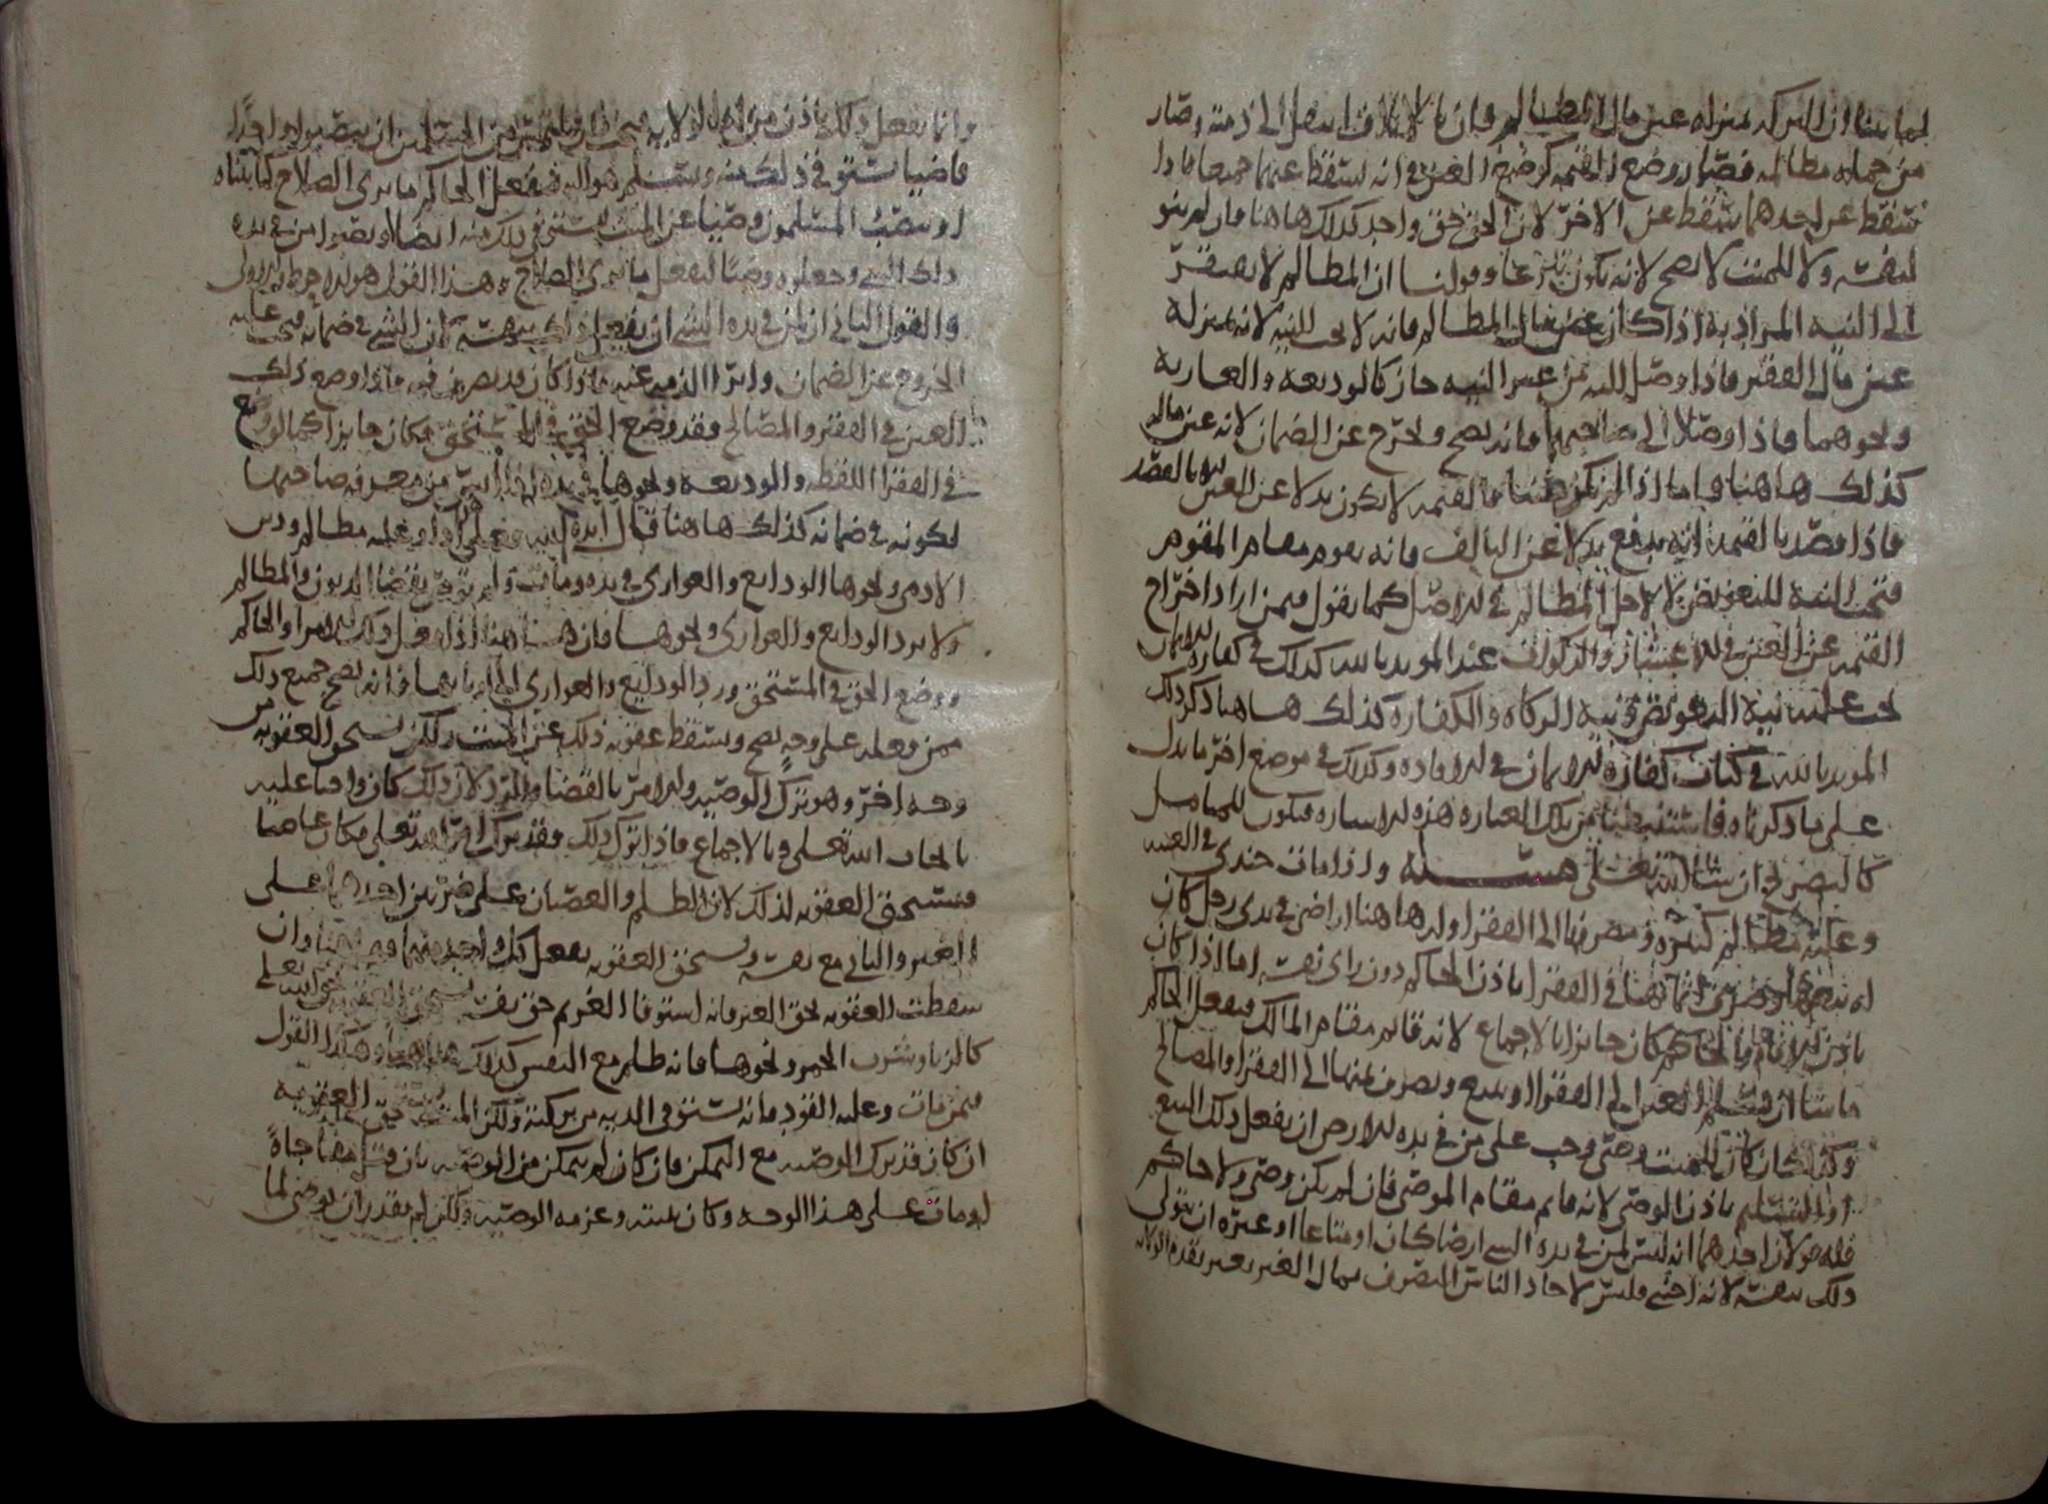 لما بينا ان التركه بمنزله عين مال المظالم فبان بالاتلاف انتقل الى ذمته وصار
من جمله مظالمه فصار وضع القيمه كوضع العين في انه تسقط عنهما جميعا فاذا
سقط عن احدهما سقط عن الاخر لان الحق حق واحد كذلك هاهنا فان لم ينو
لنفسه ولا للميت لا يصح لانه يكون تبرعا وقولنا ان المظالم لا يفتقر
الى النيه المراد به اذا كان عين مال المظالم فانه لا يجب النيه لانه بمنزله
عين مال الفقير فاذا وصل اليه من غير النيه جاز كالوديعه والعاريه
ونحوهما فاذا وصلا الى صاحبهما فانه يصح ويخرج عن الضمان لانه عين ماله
كذلك هاهنا فاما اذا لم يكن عينا فالقيمه لا يكون بدلا عن العين الا بالقصد
فاذا قصد بالقيمه انه يدفع بدلا عن التالف فانه يقوم مقام المقوم
فتجب النيه للتعويض لا لاجل المظالم في الاصل كما يقول فيمن اراد اخراج
القيمه عن العين في الاعشار والزكوات عند المويد بالله كذلك في كفاره الايمان
يجب عليه نيه التعويض ونيه الزكاه والكفاره كذلك هاهنا ذكر ذلك
المويد بالله في كتاب كفاره الايمان في الافاده وكذلك في موضع اخر ما يدل
على ما ذكرناه فاستنبطنا من تلك العباره هذه الاشاره فيكون للمتامل
كالتصريح ان شا الله تعلى مسله واذا مات جندي في الفتنه
وعليه مظالم كثيره ومصرفها الى الفقرا ولهذا هاهنا اراضي في يدي رجل كان
له بيعها وصرف اثمانها في الفقرا باذن الحاكم دون راي نفسه اما اذا كان
باذن الامام والحاكم كان جايزا بالاجماع لانه قايم مقام المالك فيفعل الحاكم
ما شا ان يسلم العين الى الفقرا او يبيع ويصرف ثمنها الى الفقرا والمصالح
وكذلك ان كان للميت وصي وجب على من في يده الارض ان يفعل ذلك البيع
او التسليم باذن الوصي لانه قايم مقام الموصي فان لم يكن وصي ولا حاكم
فله قولان احدهما انه ليس لمن في يده الشي ارضا كان او متاعا او غيره ان يتولى
ذلك بنفسه لانه اجنبي وليس لاحاد الناس التصرف بمال الغير بغير تقدم الولايه
وانما يفعل ذلك باذن من له الولايه من المسلمين ان ينصبوا واحدا
قاضيا يستوفي ذلك منه ويسلم هو اليه فيفعل الحاكم ما يرى الصلاح كما بيناه
او ينصب المسلمون وصيا عن الميت يستوفي ذلك منه ايضا او نصبوا من في يده
ذلك الشي وجعلوه وصيا ليفعل ما يرى الصلاح هذا القول هو الاحوط والاولى
والقول الثاني ان لمن في يده الشي ان يفعل ذلك بنفسه لان الشي في ضمانه فيجب عليه
الخروج عن الضمان وابرا الذمه عنه فاذا كان قد يصرف فيه فاذا وضع ذلك
العين في الفقير والمصالح فقد وضع الحق في المستحق فكان جايزا كما لو وضع
في الفقرا اللقطه والوديعه ونحوها في يده اذا ايس من معرفه صاحبها
لكونه في ضمانه كذلك هاهنا قال ايده الله فعلى هذا لو عليه مظالم ودين
الادمي ونحوها الودايع والعواري في يده ومات ولم يوص بقضا الديون والمظالم
ولا برد الودايع والعواري ونحوها فان هاهنا اذا فعل ذلك الامرا والحاكم
ووضع الحق في المستحق ورد الودايع والعواري الى اربابها فانه يصح جميع ذلك
ممن فعله على وجه يصح ويسقط عقوبه ذلك عن الميت ولكن يستحق العقوبه من
وجه اخر وهو ترك الوصيه والامر بالقضا والرد لان ذلك كان واجبا عليه
بايجاب الله تعلى وبالاجماع فاذا ترك ذلك فقد ترك امر الله تعلى فكان عاصيا
فيستحق العقوبه لذلك لان الظلم والعصيان على ضربين احدهما على
الغير والثاني مع نفسه ويستحق العقوبه بفعل كل واحد منهما وان
سقطت العقوبه بحق الغير فانه استوفا الغريم حق نفسه يستحق العقوبه بحق الله تعلى
كالزنا وشرب الخمر ونحوها فانه ظلم مع النفس كذلك هاهنا وهكذا القول
فيمن مات وعليه القود فانه يستوفي الديه من تركته ولكن الميت يستحق العقوبه
ان كان قد ترك الوصيه مع التمكن فان كان لم يتمكن من الوصيه بان قتل مفاجاه
او مات على هذا الوجه وكان نيته وعزمه الوصيه ولكن لم يقدر ان يوصي لما